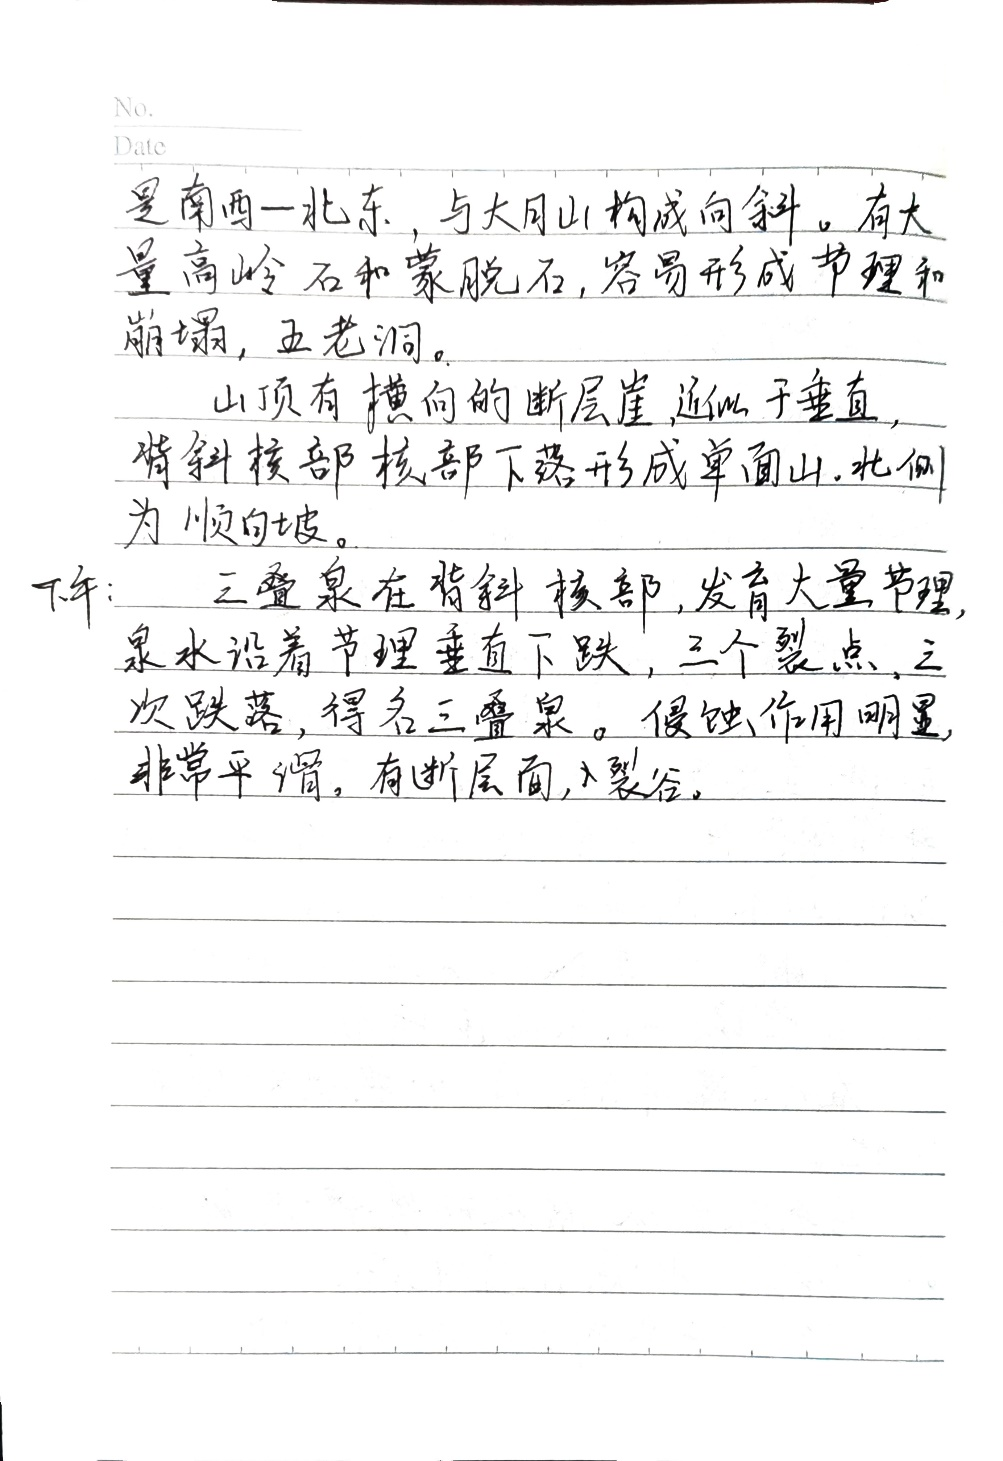 No.
Date
是南西—北东，与大月山构成向斜。有大
量高岭石和蒙脱石，容易形成节理和
崩塌，五老洞。
山顶有横向的断层崖，近似于垂直，
背斜核部核部下落形成单面山．北侧
为顺向坡。
下午：三叠泉在背斜核部，发育大量节理，
泉水沿着节理垂直下跌，三个裂点、三
次跌落，得名三叠泉。侵蚀作用明显，
非常平滑。有断层面，裂谷。